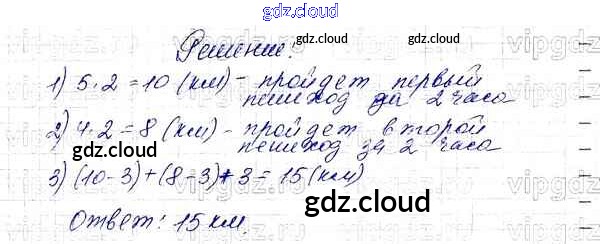 gdz.cloud
Решение:
1) 5·2=10 (км) - пройдет первый
пешеход за 2 часа
gdz.cloud
2) 4·2=8 (км) - пройдет второй
пешеход за 2 часа
gdz.cloud
gdz.cloud
3) (10-3)+(8-3)+3=15 (км)
Ответ: 15 км.
gdz.cloud